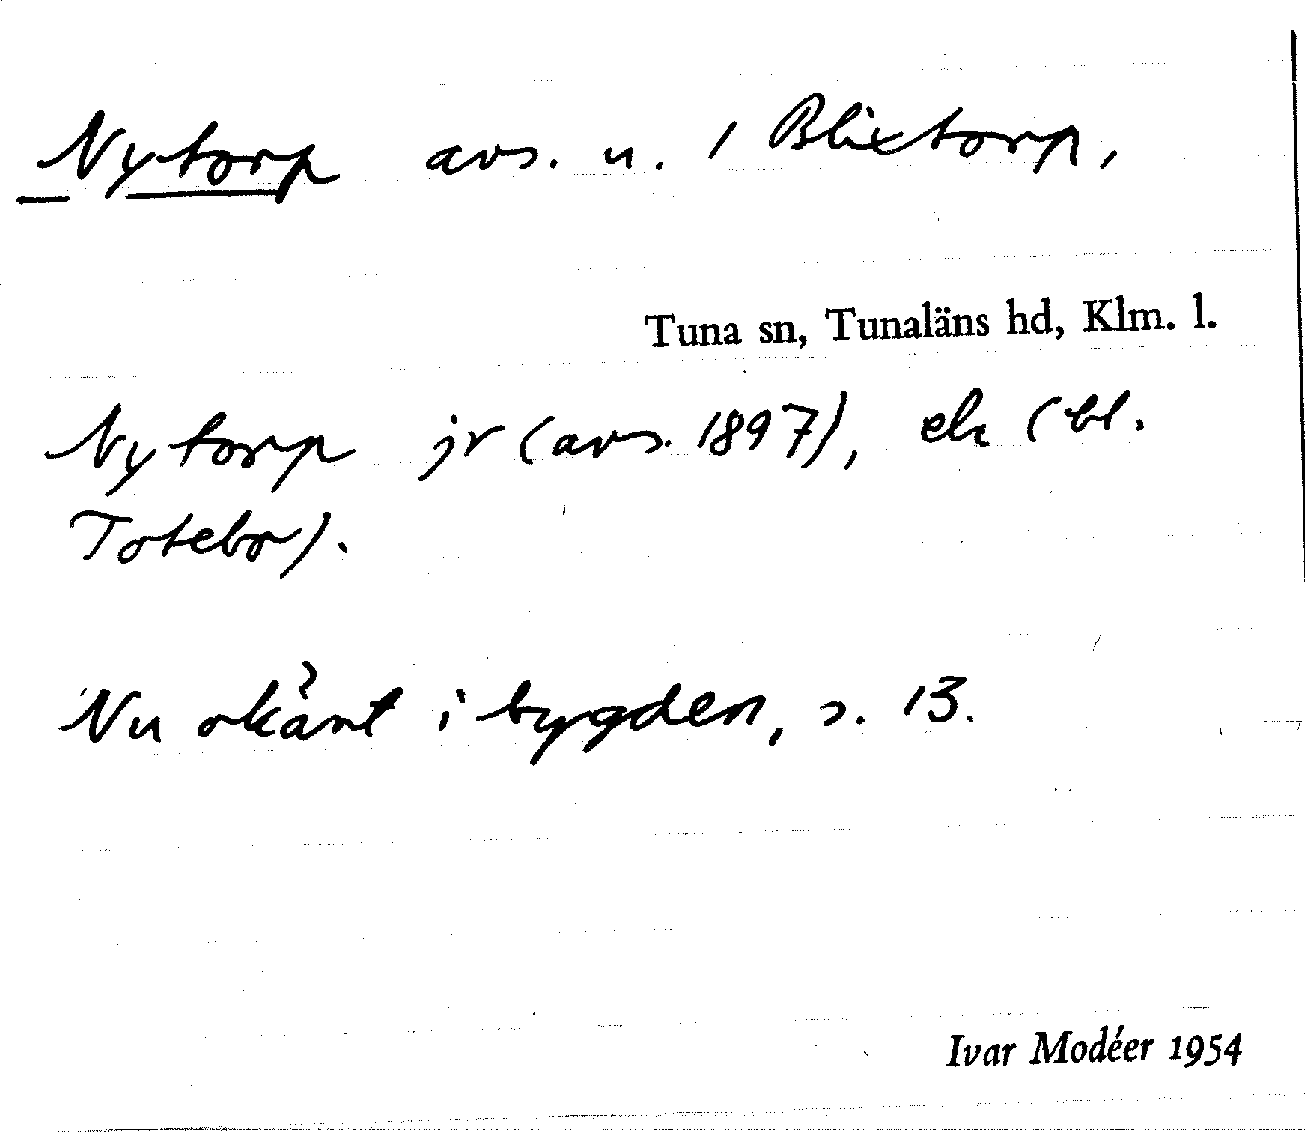 Nytorp avs. u. / Blixtorp,
Tuna sn, Tunaläns hd, Klm. l.
Nytorp jr (avs. 1897), ek (bl.
Totebo).
Nu okänt i bygden, s. 13.
Ivar Modéer 1954